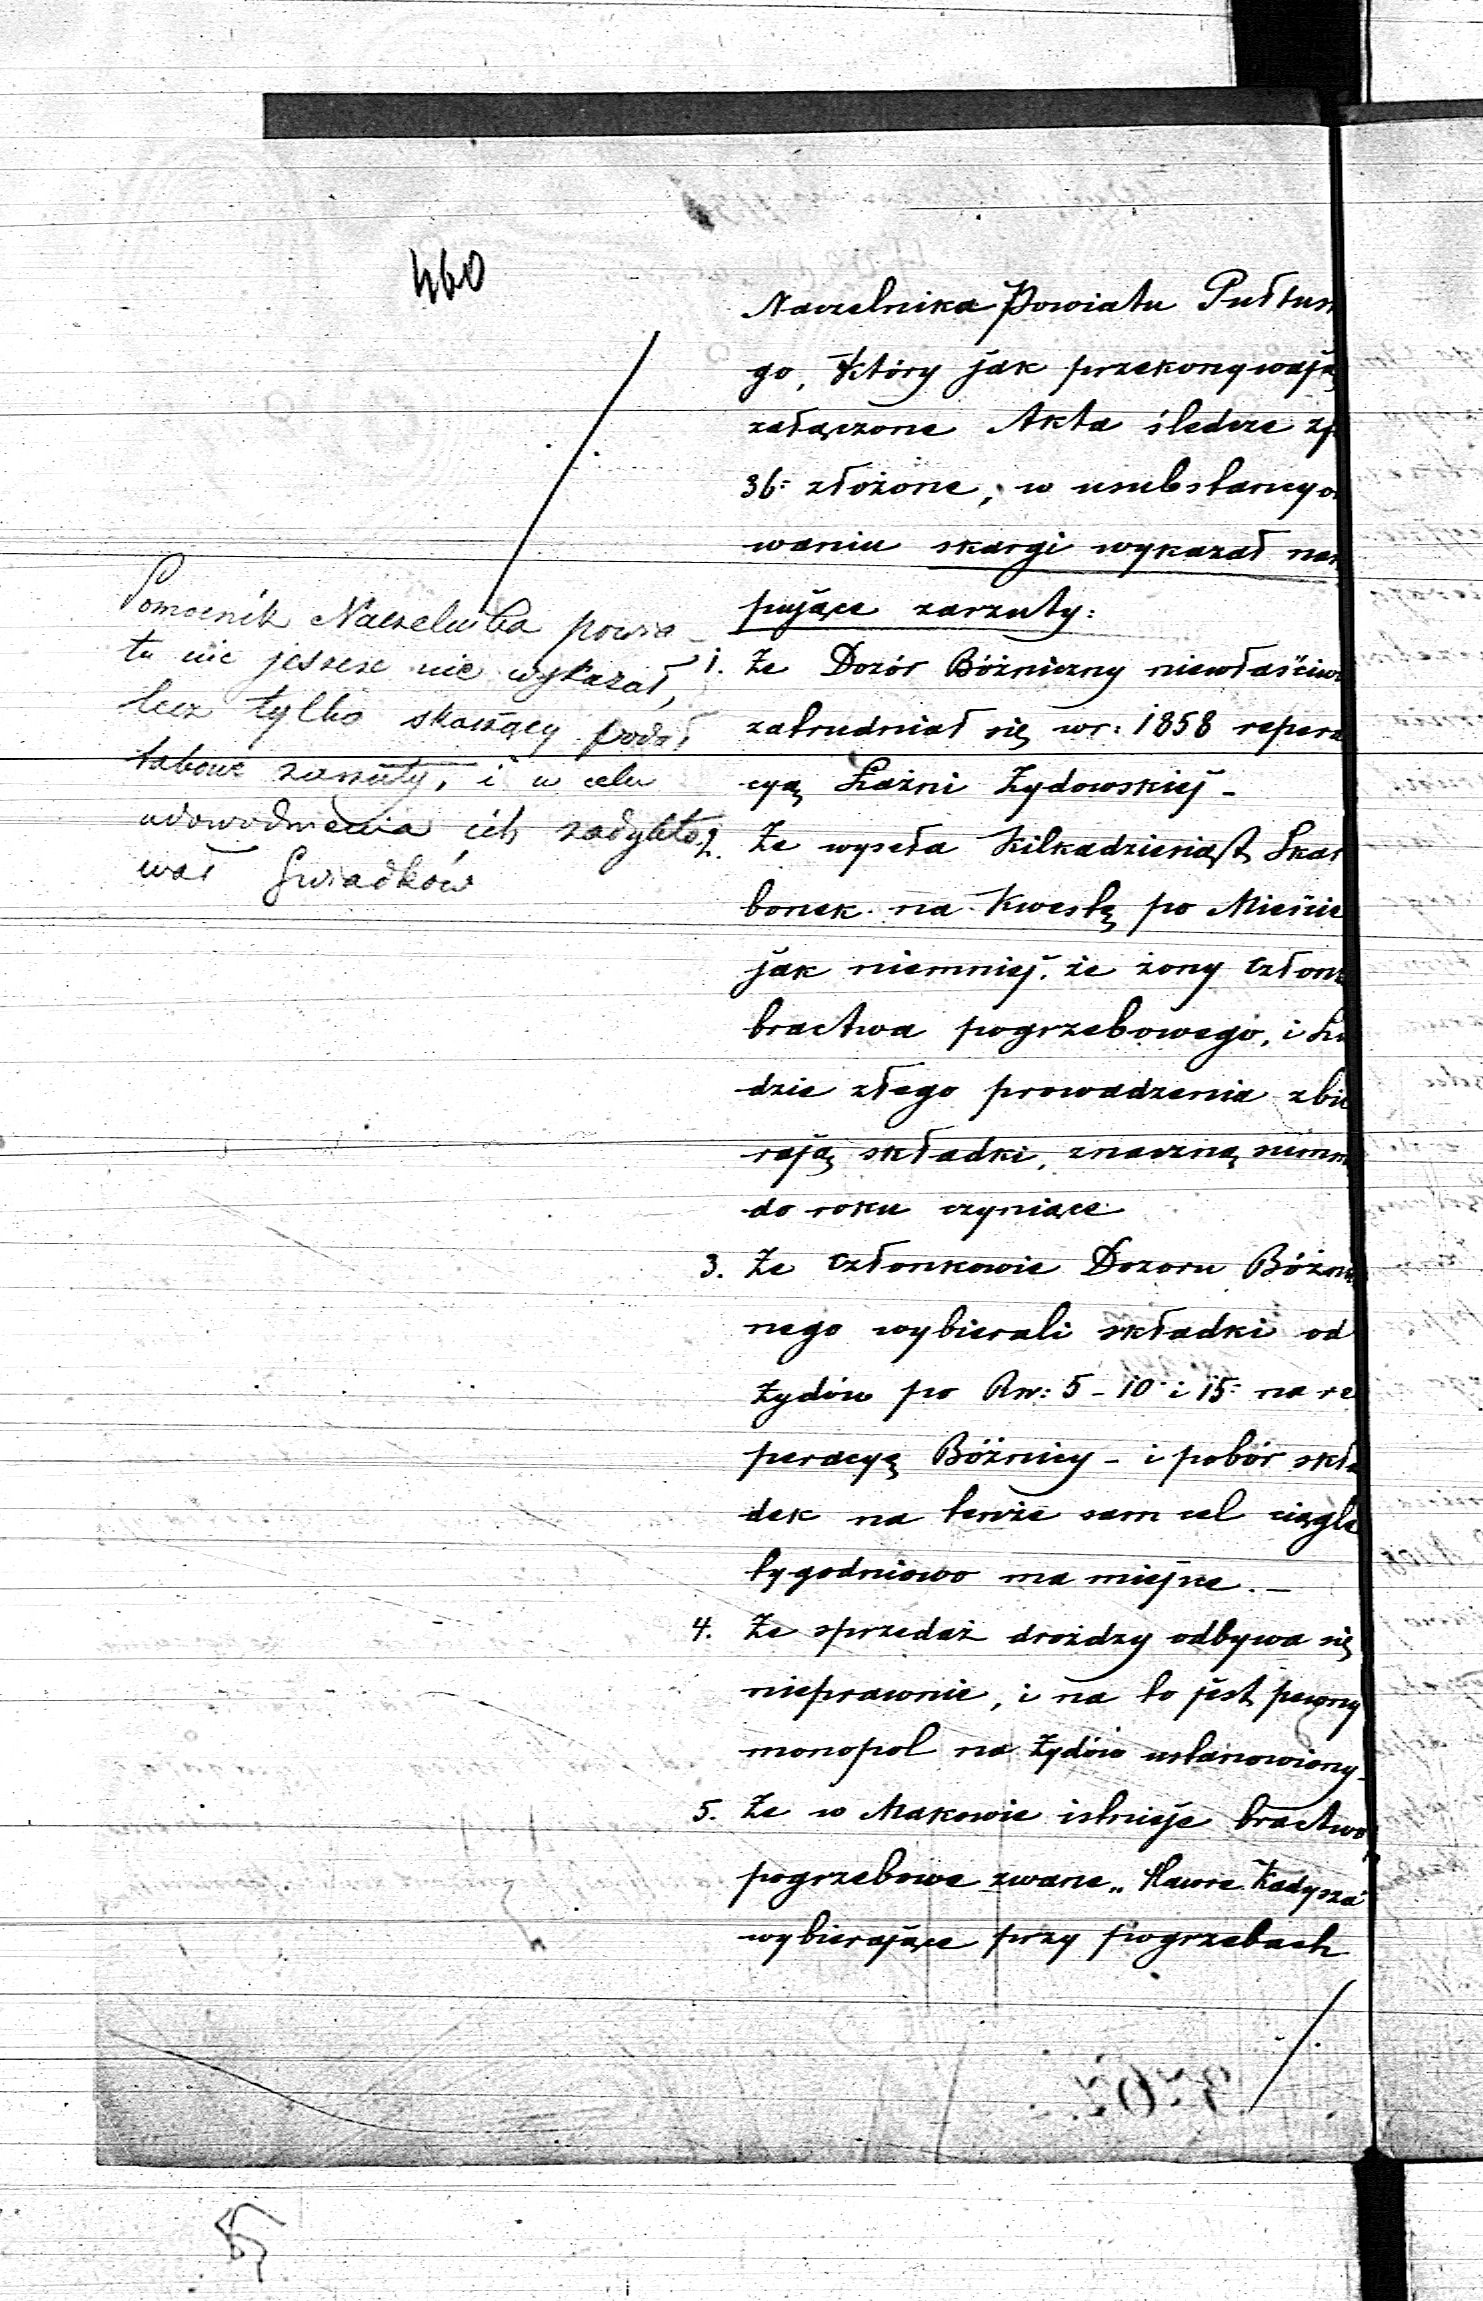 460
Naczelnika Powiatu Pułtusk
go, który jak przekonywają
załączone Akta śledcze z p
36: złożone, w usubstancyo
waniu skargi wykazał nas
pujące zarzuty:
1. Że Dozór Bóżniczny niewłaściwie
zatrudniał się w r: 1858 repera
cyą Łaźni Żydowskiej -
2. Że wyseła kilkadziesiąt Skar
bonek na Kwestę po Mieście
jak niemniej, że żony członk
bractwa pogrzebowego, i Lu
dzie złego prowadzenia zbie
rają składki, znaczną summę
do roku czyniące
3. Że członkowie Dozoru Bóżni
nego wybierali składki od
Żydów po Rs: 5 - 10 i 15: na re
peracyę Bóżnicy - i pobór skła
dek na tenże sam cel ciągle
tygodniowo ma miejsce. -
4. Że sprzedaż drożdży odbywa się
nieprawnie, i na to jest pewny
monopol na Żydów ustanowiony -
5. Że w Makowie istnieje bractwo
pogrzebowe zwane „Hawre Kadysza"
wybierające przy pogrzebach
Pomocnik Naczelnika powia-
tu nic jeszcze nie wykazał,
lecz tylko skarżący podał
takowe zarzuty, i w celu
udowodnienia ich zadykto
wał Świadków